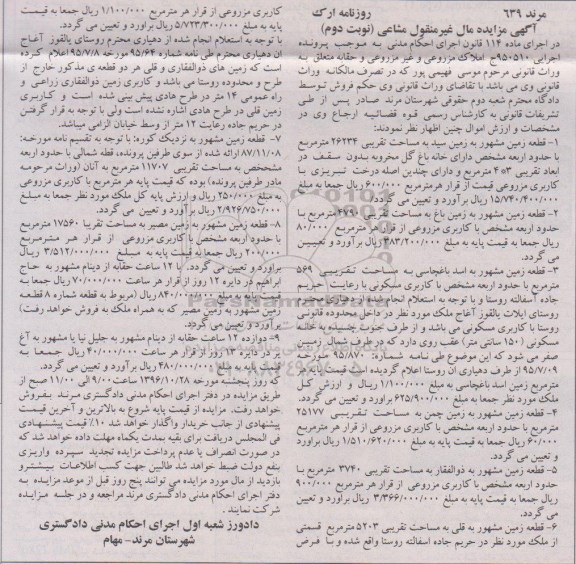 مرند ۶۳۹
روزنامه ارک
آگهی مزایده مال غیرمنقول مشاعی (نوبت دوم)
در اجرای ماده ۱۱۴ قانون اجرای احکام مدنی به موجب پرونده
اجرایی ۹۵۰۵۱۰ج املاک مزروعی و غیر مزروعی و حقابه متعلق به
وراث قانونی مرحوم موسی فهیمی پور که در تصرف مالکانه وراث
قانونی وی می باشد با تقاضای وراث قانونی وی حکم فروش توسط
دادگاه محترم شعبه دوم حقوقی شهرستان مرند صادر پس از طی
تشریفات قانونی به کارشناس رسمی قوه قضائیه ارجاع وی در
مشخصات و ارزش اموال چنین اظهار نظر نمودند:
۱- قطعه زمین مشهور به زمین سید به مساحت تقریبی ۲۶۲۳۴ مترمربع
با حدود اربعه مشخص دارای خانه باغ گل مخروبه بدون سقف در
ابعاد تقریبی ۴۰۳ مترمربع و دارای چندین اصله درخت تبریزی با
کاربری مزروعی قیمت از قرار هر مترمربع ۶۰۰/۰۰۰ ریال جمعا به مبلغ
۱۵/۷۴۰/۴۰۰/۰۰۰ ریال برآورد و تعیین می گردد.
۲- قطعه زمین مشهور به زمین باغ به مساحت تقریبی ۴۷۹۰ مترمربع با
حدود اربعه مشخص با کاربری مزروعی از قرار هر مترمربع ۸۰/۰۰۰
ریال جمعا به قیمت پایه به مبلغ ۳۸۳/۲۰۰/۰۰۰ ریال برآورد و تعیین می
گردد.
۳- قطعه زمین مشهور به اسد باغچاسی به مساحت تقریبی ۵۶۹
مترمربع با حدود اربعه مشخص با کاربری مسکونی با رعایت حریم
جاده آسفالته روستا و با توجه به استعلام انجام شده از دهیاری محترم
روستای ایلات یالقوز آغاج ملک مورد نظر در داخل محدوده قانونی
روستا با کاربری مسکونی می باشد و از طرف جنوب چسبیده به خانه
مسکونی (۱۵۰ سانتی متر) عقب روی دارد که در طرف شمال زمین
صفر می شود که این موضوع طی نامه شماره: ۹۵/۸۷۰ مورخه
۹۵/۷/۰۹ از طرف دهیاری آن روستا اعلام گردیده است قیمت پایه هر
مترمربع زمین اسد باغچاسی به مبلغ ۱/۱۰۰/۰۰۰ ریال و ارزش کل
ملک مورد نظر جمعا به مبلغ ۶۲۵/۹۰۰/۰۰۰ برآورد و تعیین می گردد.
۴- قطعه زمین مشهور به زمین چمن به مساحت تقریبی ۲۵۱۷۷
مترمربع با حدود اربعه مشخص با کاربری مزروعی از قرار هر مترمربع
۶۰/۰۰۰ ریال جمعا به قیمت پایه به مبلغ ۱/۵۱۰/۶۲۰/۰۰۰ ریال برآورد
و تعیین می گردد.
۵- قطعه زمین مشهور به ذوالفقار به مساحت تقریبی ۳۷۴۰ مترمربع با
حدود اربعه مشخص با کاربری مزروعی از قرار هر مترمربع ۹۰۰/۰۰۰
ریال جمعا به قیمت پایه به مبلغ ۳/۳۶۶/۰۰۰/۰۰۰ ریال برآورد و تعیین
می گردد.
۶- قطعه زمین مشهور به قلی به مساحت تقریبی ۵۲۰۳ مترمربع قسمتی
از ملک مورد نظر در حریم جاده آسفالته روستا واقع شده و با فرض
کاربری مزروعی از قرار هر مترمربع ۱/۱۰۰/۰۰۰ ریال جمعا به قیمت
پایه به مبلغ ۵/۷۲۳/۳۰۰/۰۰۰ ریال برآورد و تعیین می گردد.
با توجه به استعلام انجام شده از دهیاری محترم روستای یالقوز آغاج
آن دهیاری محترم طی نامه شماره ۹۵/۶۴ مورخه ۹۵/۷/۸ اعلام کرده
است که زمین های ذوالفقاری و قلی هر دو قطعه ی مذکور خارج از
طرح و محدوده روستا می باشد و کاربری زمین ذوالفقاری زراعی و
راه عمومی ۱۴ متر در طرح هادی پیش بینی شده است و کاربری
زمین قلی در طرح هادی اشاره نشده است ولی با توجه به قرار گرفتن
در حریم جاده رعایت ۱۲ متر از وسط خیابان الزامی میباشد.
۷- قطعه زمین مشهور به نزدیک کوره: با توجه به تقسیم نامه مورخه:
۸۷/۱۱/۰۸ ارائه شده از سوی طرفین پرونده، قطه شمالی با حدود اربعه
مشخص به مساحت تقریبی ۱۱۷۰۷ مترمربع به آنان (وراث مرحومه
مادر طرفین پرونده) بوده که قیمت پایه هر مترمربع با کاربری مزروعی
به مبلغ ۲۵۰/۰۰۰ ریال و ارزش پایه کل ملک مورد نظر جمعا به مبلغ
۲/۹۲۶/۷۵۰/۰۰۰ ریال برآورد و تعیین می گردد.
۸- قطعه زمین مشهور به زمین مصیر به مساحت تقریبا ۱۷۵۶۰ مترمربع
با حدود اربعه مشخص با کاربری مزروعی از قرار هر مترمربع
۲۰۰/۰۰۰ ریال جمعا به قیمت پایه به مبلغ ۳/۵۱۲/۰۰۰/۰۰۰ ریال
برآورد و تعیین می گردد. با ۱۲ ساعت حقابه از دینام مشهور به حاج
ابراهیم در دایره ۱۲ روز از قرار هر ساعت ۷۰/۰۰۰/۰۰۰ ریال جمعا به
قیمت پایه به مبلغ ۸۴۰/۰۰۰/۰۰۰ ریال (مربوط به قطعه شماره ۸ قطعه
زمین مشهور به زمین مصیر که به همراه ملک به فروش خواهد رفت)
برآورد و تعیین می گردد.
۹- دوازده ۱۲ ساعت حقابه از دینام مشهور به جلیل نیا یا مشهور به آغ
یر در دایره ۱۳ روز از قرار هر ساعت ۴۰/۰۰۰/۰۰۰ ریال جمعا به
قیمت پایه به مبلغ ۴۸۰/۰۰۰/۰۰۰ ریال برآورد و تعیین می گردد.
که روز پنجشنبه مورخه ۱۳۹۶/۱۰/۲۸ ساعت ۹/۰۰ الی ۱۱/۰۰ صبح از
طریق مزایده در دفتر اجرای احکام مدنی دادگستری مرند بفروش
خواهد رفت. مزایده از قیمت پایه شروع به بالاترین و آخرین قیمت
پیشنهادی از جانب خریدار واگذار خواهد شد ۱۰٪ قیمت پیشنهادی
فی المجلس دریافت برای بقیه بمدت یکماه مهلت داده خواهد شد که
در صورت انصراف یا عدم پرداخت مزایده تجدید سپرده واریزی
بنفع دولت ضبط خواهد شد طالبین جهت کسب اطلاعات بیشتر و
بازدید از مال مورد مزایده می توانند پنج روز قبل از موعد مزایده به
دفتر اجرای احکام مدنی دادگستری مرند مراجعه و در جلسه مزایده
شرکت نمایند.
دادورز شعبه اول اجرای احکام مدنی دادگستری
شهرستان مرند- مهام